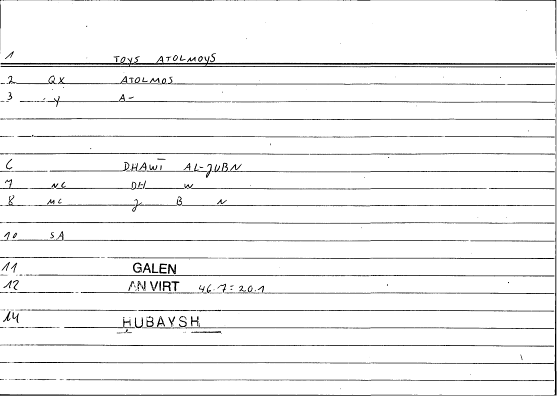 1 TOYS ATOLMOYS
2 QX ATOLMOS
3 y A-
6 DHAWĪ AL-JUBN
7 NC DH W
8 MC J B N
10 SA
11 GALEN
12 AN VIRT 46.7=20.1
14 HUBAYSH